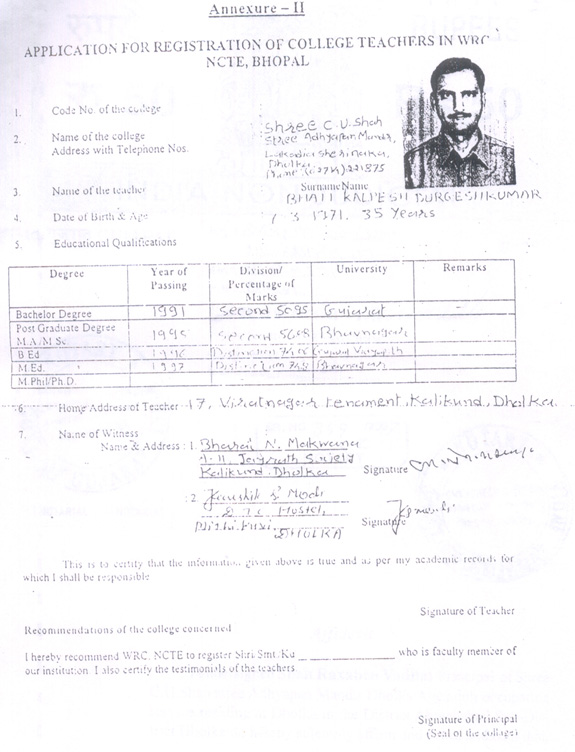 Annexure – II
APPLICATION FOR REGISTRATION OF COLLEGE TEACHERS IN WRC
NCTE, BHOPAL
1. Code No. of the college
2. Name of the college Shree C.U. Shah
Address with Telephone Nos. Stree Adhyapan Mandir,
Dholka
3. Name of the teacher Surname Name
BHATT KALPESH DURGESHKUMAR
4. Date of Birth & Age 3 1971. 35 Years
5. Educational Qualifications
Degree Year of Passing Division/ Percentage of Marks University Remarks
Bachelor Degree 1991 Second Gujarat -
Post Graduate Degree M.A/M Sc. Second Bhavnagar
B Ed Distinction
M.Ed. 1997 Distinction Bhavnagar
M.Phil/Ph.D.
6. Home Address of Teacher 17, Viratnagar tenament, Kalikund, Dholka.
7. Name of Witness
Name & Address : 1. Bharat N. Makwana
Society
Kalikund. Dholka
Signature
: 2. Kaushik S Modi
Hostel,
DHOLKA
Signature
This is to certify that the information given above is true and as per my academic records for
which I shall be responsible
Signature of Teacher
Recommendations of the college concerned
I hereby recommend WRC, NCTE to register Shri/Smt./Ku who is faculty member of
our institution. I also certify the testimonials of the teachers
Signature of Principal
(Seal of the college)